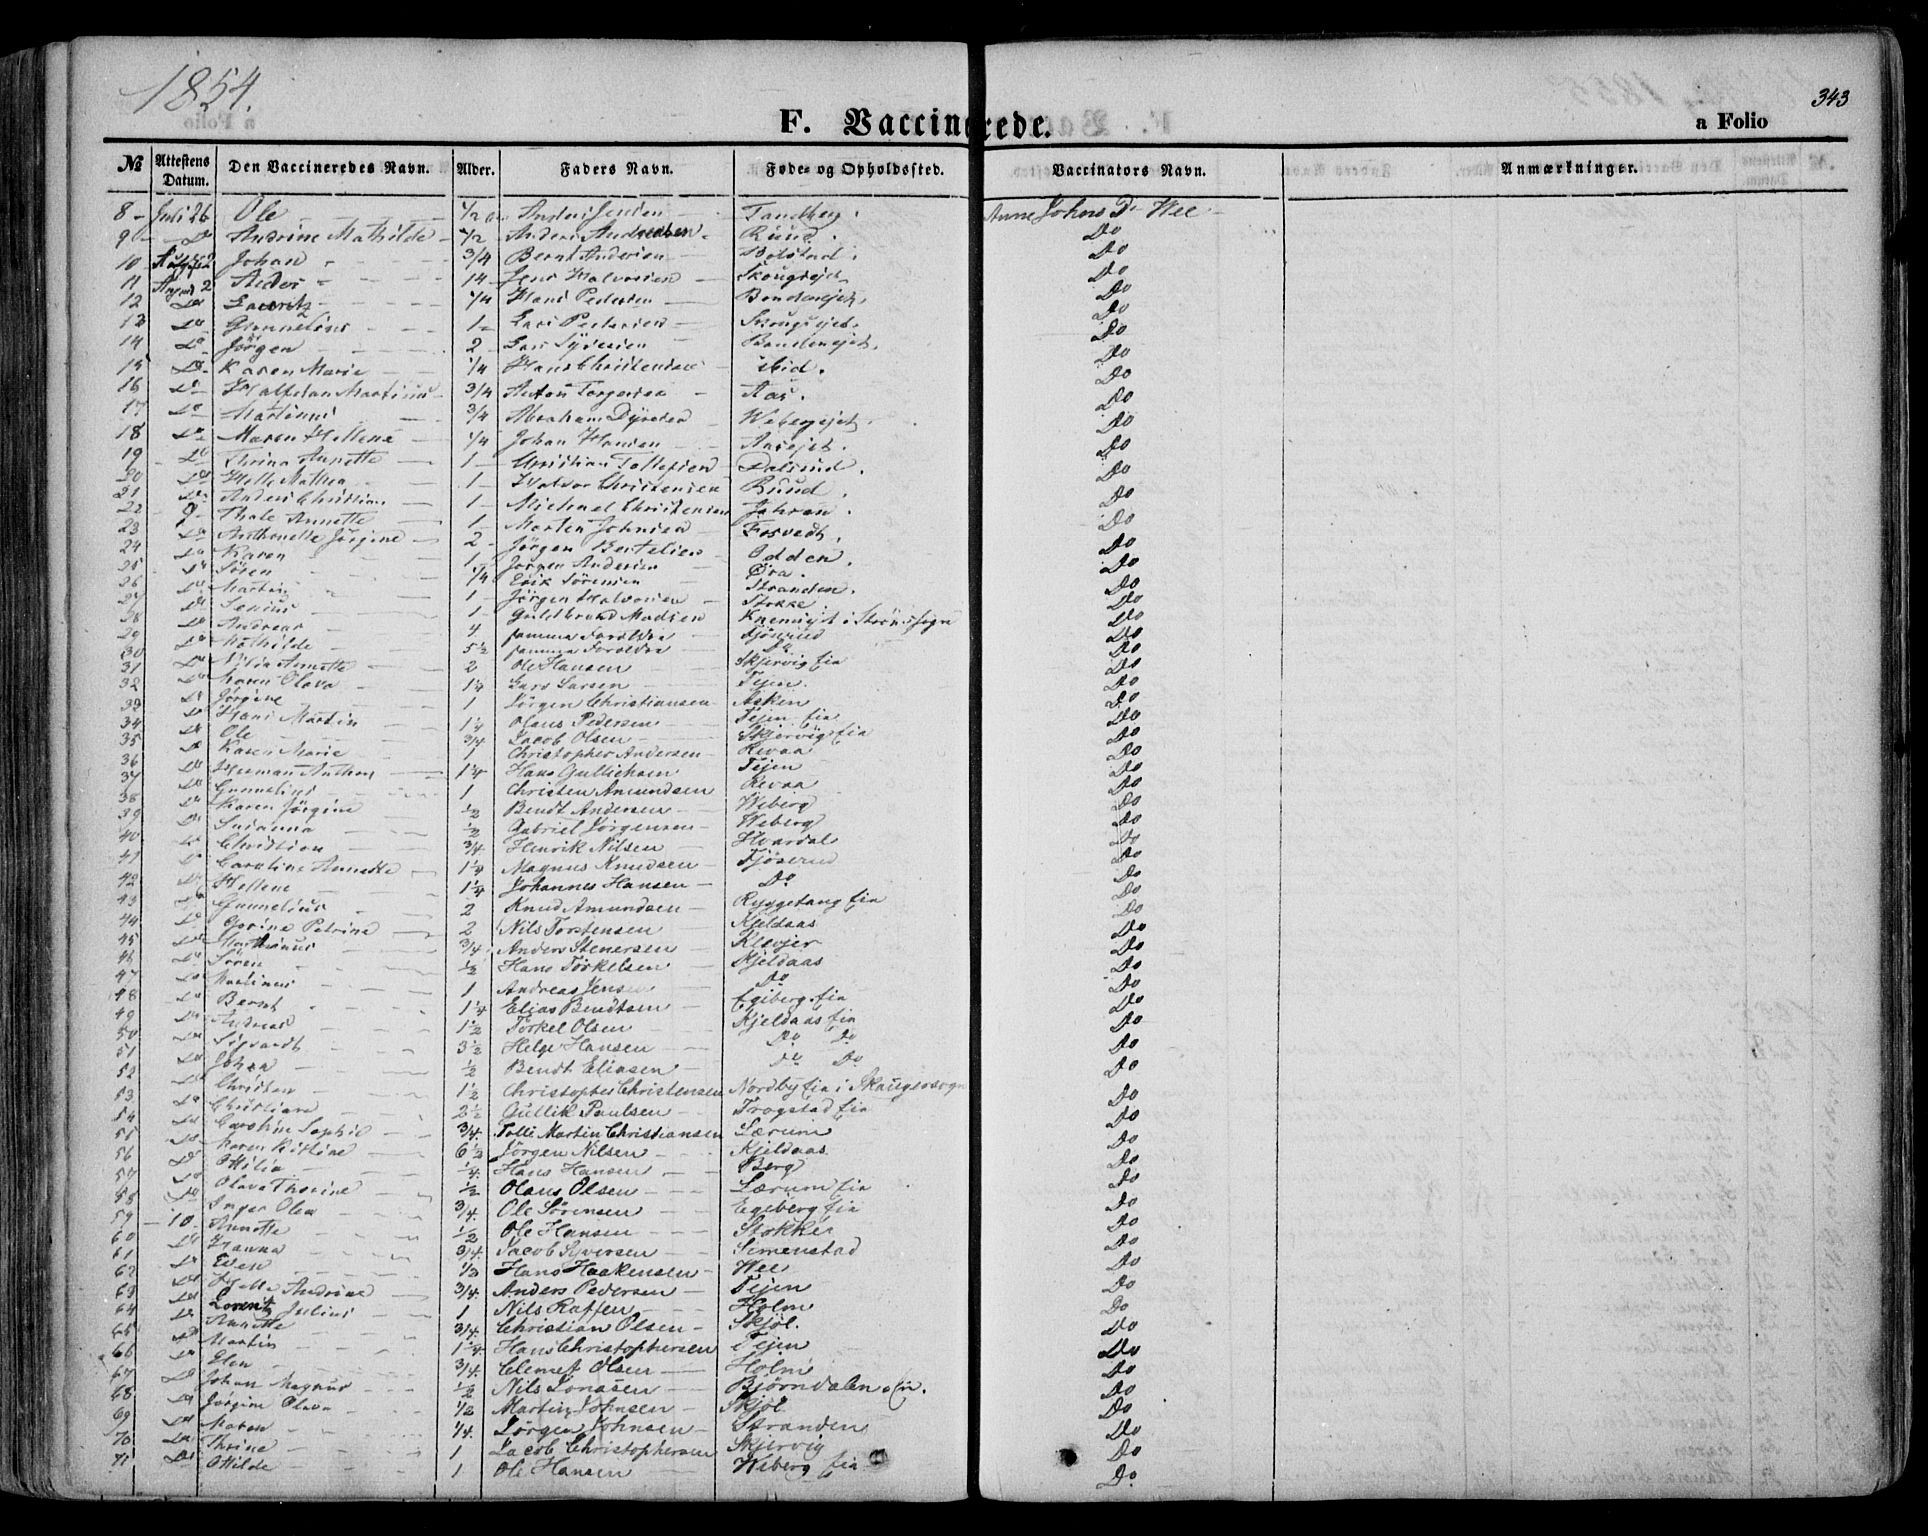 1854.
343
F. Vaccinerede.
a Folio
№ Attestens Datum. Den Vaccineredes Navn. Alder. Faders Navn. Føde- og Opholdssted. Vaccinators Navn. Anmærkninger.
8 Juli 26 Ole 1/2 Anders Jensen Tandberg. Anne Johns Dr Wee
9 Do Andrine Mathilde 1/2 Anders Andersen Ruud. Do
10 Johan 3/4 Bernt Andersen Bolstad. Do
11 August 2 Peder 14 Jens Halvorsen Skougsejet. Do
12 Do Lauritz 1/4 Hans Pedersen Bondensejet. Do
13 Do Gunnelius 1 Lars Pedersen Skougsejet. Do
14 Do Jörgen 2 Lars Syversen Bondensejet. Do
15 Do Karen Marie 1/4 Hans Christensen ibid. Do
16 Do Halfdan Martinus 3/4 Anton Torgersen Aas. Do
17 Do Martinus 3/4 Abraham Dyresen Webergejet. Do
18 Do Maren Hellene 1/4 Johan Hansen Aasejet. Do
19 Do Thrina Annette 1 Christian Tollefsen Dalsrud. Do
20 Do Helle Mathea 1 Halvor Christensen Ruud. Do
21 Do Anders Christian 1 Michael Christensen Jahren. Do
22 9 Thale Annette 1 Morten Johnsen Fosvedt. Do
23 Do Anthonette Jörgine 2 Jörgen Bertelsen Odden. Do
24 Do Karen 1 Jörgen Andersen Øra. Do
25 Do Sören 1/4 Erik Sörensen Stranden. Do
26 Do Martin 1 Jörgen Halvorsen Stokke. Do
27 Do Senius 1 Guldbrand Madsen Knemsejet i Strömssogn Do
28 Do Andreas 4 samme Foreldre Fjöserud Do
29 Do Mathilde 5 1/2 samme Foreldre Do Do
30 Do Nilia Annette 2 Ole Hansen Skjervig eia Do
31 Do Karen Olava 1 1/4 Lars Larsen Tejen. Do
32 Do Jörgine 1 Jörgen Christiansen Asken Do
33 Do Hans Martin 1 1/4 Olaus Pedersen Tejen eia Do
34 Do Ole 3/4 Jacob Olsen Skjervig eia Do
35 Do Karen Marie 1 Christopher Andersen Revaa Do
36 Do Herman Anthon 1 1/4 Hans Gulliksen Tejen Do
37 Do Gunnelius 1 Christen Amundsen Revaa Do
38 Do Karen Jörgine 1/2 Bendt Andersen Weberg Do
39 Do Susanna 1/2 Gabriel Jörgensen Weberg Do
40 Do Christian 3/4 Henrik Nilsen Hvardal Do
41 Do Caroline Annette 1 1/4 Magnus Knudsen Fjöserud Do
42 Do Hellene 1 1/4 Johannes Hansen Do Do
43 Do Gunnelius 2 Knud Amundsen Ryggetang eia Do
44 Do Gorine Petrine 2 Nils Torstensen Kjeldaas Do
45 Do Marthinus 3/4 Anders Stenersen Klevjer Do
46 Do Sören 1/2 Hans Torkelsen Kjeldaas Do
47 Do Martinus 1 Andreas Jensen Do Do
48 Do Bernt 1 1/4 Elias Bendtsen Egeberg eia Do
49 Do Andreas 1 1/2 Torkel Olsen Kjeldaas eia Do
50 Do Sigvardt 3 1/2 Helge Hansen Do Do Do
51 Do Johan 1/2 Bendt Eliasen Do Do Do
52 Do Christen 1 1/2 Christopher Christensen Nordby eia i Skaugersogn Do
53 Do Christiane 2 1/2 Gullik Paulsen Trogstad eia Do
54 Do Caroline Sophie 3/4 Tolle Martin Christiansen Lærum Do
55 Do Karen Kistine 6 1/2 Jörgen Nilsen Kjeldaas Do
56 Do Ottilia 1/4 Hans Hansen Berg Do
57 Do Olava Thorine 1/2 Olaus Olsen Lærum eia Do
58 Do Inger Olea 3/4 Ole Sörensen Egeberg eia Do
59 10 Annette 1/2 Ole Hansen Stokke Do
60 Do Hanna 3/4 Jacob Syversen Semenstad Do
61 Do Even 1/3 Hans Haakensen Wee Do
62 Do Helle Andrine 3/4 Anders Pedersen Tejen Do
63 Do Lorentz Julius 1 Nils Raffen Holm Do
64 Do Annette 3/4 Christian Olsen Skjöl. Do
65 Do Martin 1 1/4 Hans Christophersen Tejen Do
66 Do Elen 3/4 Clemet Olsen Holm Do
67 Do Johan Magnus 1/2 Nils Jonasen Björndalen eia. Do
68 Do Jörgine Olava 1/2 Martin Johnsen Skjöl Do
69 Do Maren 1/4 Jörgen Johnsen Stranden Do
70 Do Thrine 1 Jacob Christophersen Skjervig Do
71 Do Ottilde 1 Ole Hansen Weberg eia Do